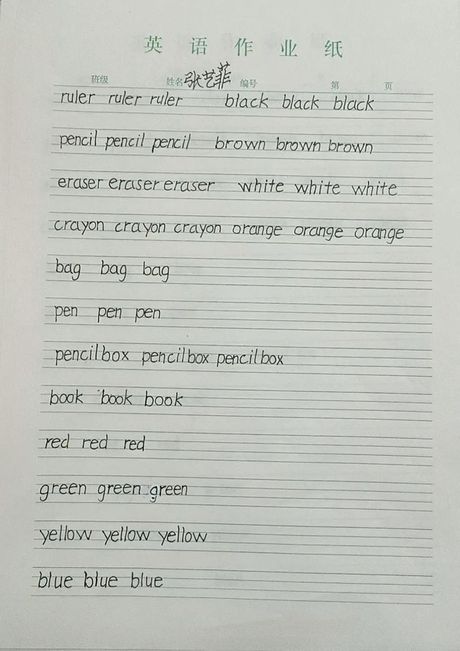 英语作业纸
班级 姓名 张艺菲 编号 第 页
ruler ruler ruler black black black
pencil pencil pencil brown brown brown
eraser eraser eraser white white white
crayon crayon crayon orange orange orange
bag bag bag
pen pen pen
pencilbox pencilbox pencilbox
book book book
red red red
green green green
yellow yellow yellow
blue blue blue